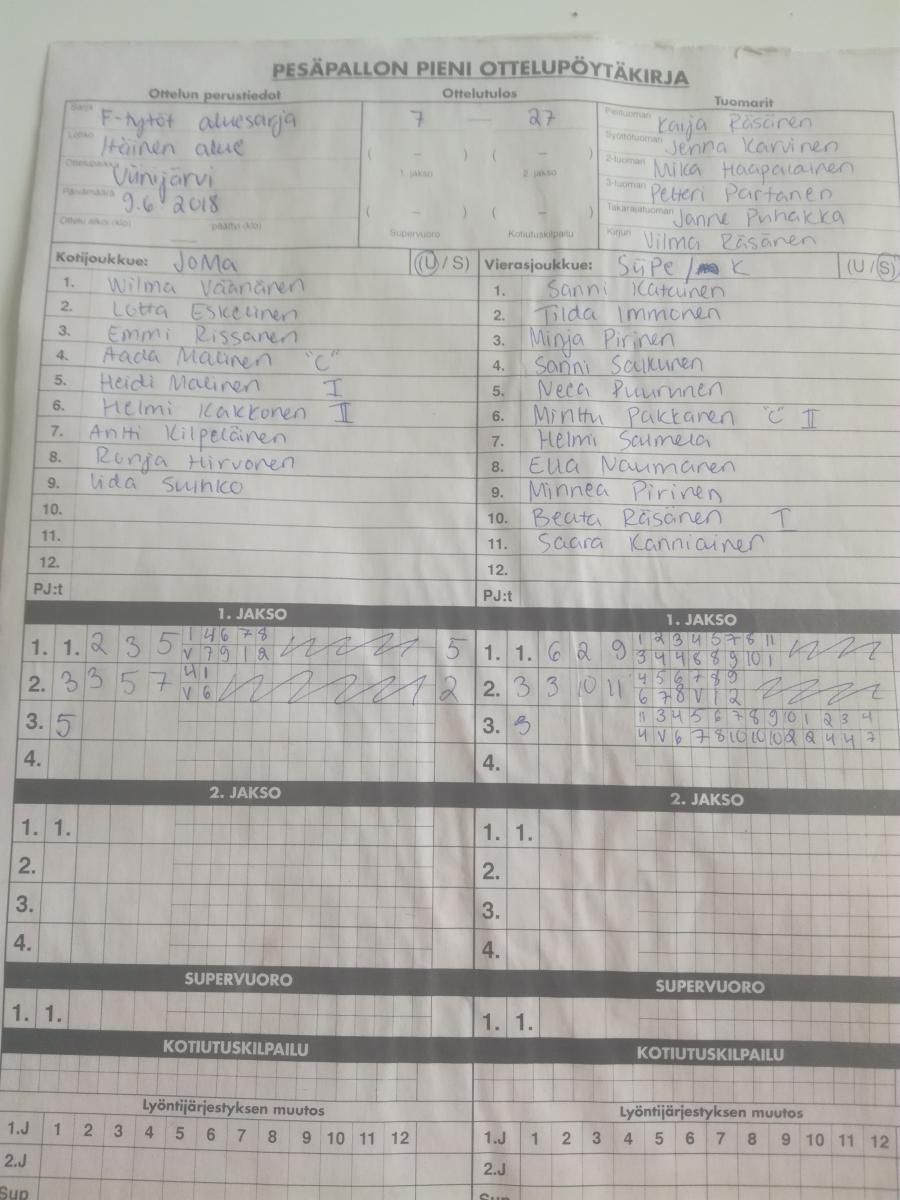 PESÄPALLON PIENI OTTELUPÖYTÄKIRJA
Ottelun perustiedot
Ottelutulos
Tuomarit
Sarja F-tytöt aluesarja
Lohko Itäinen alue
Viinijärvi
Päivämäärä 9.6 2018
Ottelu alkoi (klo) päättyi (klo)
7 — 27
( – ) ( – )
1. jakso 2. jakso
( – ) ( – )
Supervuoro Kotiutuskilpailu
Pelituomari Kaija Räsänen
Syöttötuomari Jenna Karvinen
2-tuomari Mika Haapalainen
3-tuomari Petteri Partanen
Takarajatuomari Janne Puhakka
Kirjuri Vilma Räsänen
Kotijoukkue: JoMa (U / S)
1. Wilma Väänänen
2. Lotta Eskelinen
3. Emmi Rissanen
4. Aada Malinen "C"
5. Heidi Malinen I
6. Helmi Kakkonen II
7. Antti Kilpeläinen
8. Ronja Hirvonen
9. Iida Suihko
10.
11.
12.
PJ:t
Vierasjoukkue: SiiPe / K (U / S)
1. Sanni Katainen
2. Tilda Immonen
3. Minja Pirinen
4. Sanni Saikunen
5. Neea Puurunen
6. Minttu Pakkanen "C" II
7. Helmi Saimela
8. Ella Naumanen
9. Minnea Pirinen
10. Beata Räsänen I
11. Saara Kanniainen
12.
PJ:t
1. JAKSO
1. 1. 2 3 5 1 4 6 7 8 5
V 7 9 1 2
2. 3 3 5 7 4 1 2
V 6
3. 5
4.
1. JAKSO
1. 1. 6 2 9 1 2 3 4 5 7 8 11
3 4 4 8 8 9 10 1
2. 3 3 10 11 4 5 6 7 8 9
6 7 8 V 1 2
3. 3 11 3 4 5 6 7 8 9 10 1 2 3 4
4 V 6 7 8 10 10 10 2 2 4 4 7
4.
2. JAKSO
1. 1.
2.
3.
4.
2. JAKSO
1. 1.
2.
3.
4.
SUPERVUORO
1. 1.
SUPERVUORO
1. 1.
KOTIUTUSKILPAILU
KOTIUTUSKILPAILU
Lyöntijärjestyksen muutos
1.J 1 2 3 4 5 6 7 8 9 10 11 12
2.J
Sup
Lyöntijärjestyksen muutos
1.J 1 2 3 4 5 6 7 8 9 10 11 12
2.J
Sup